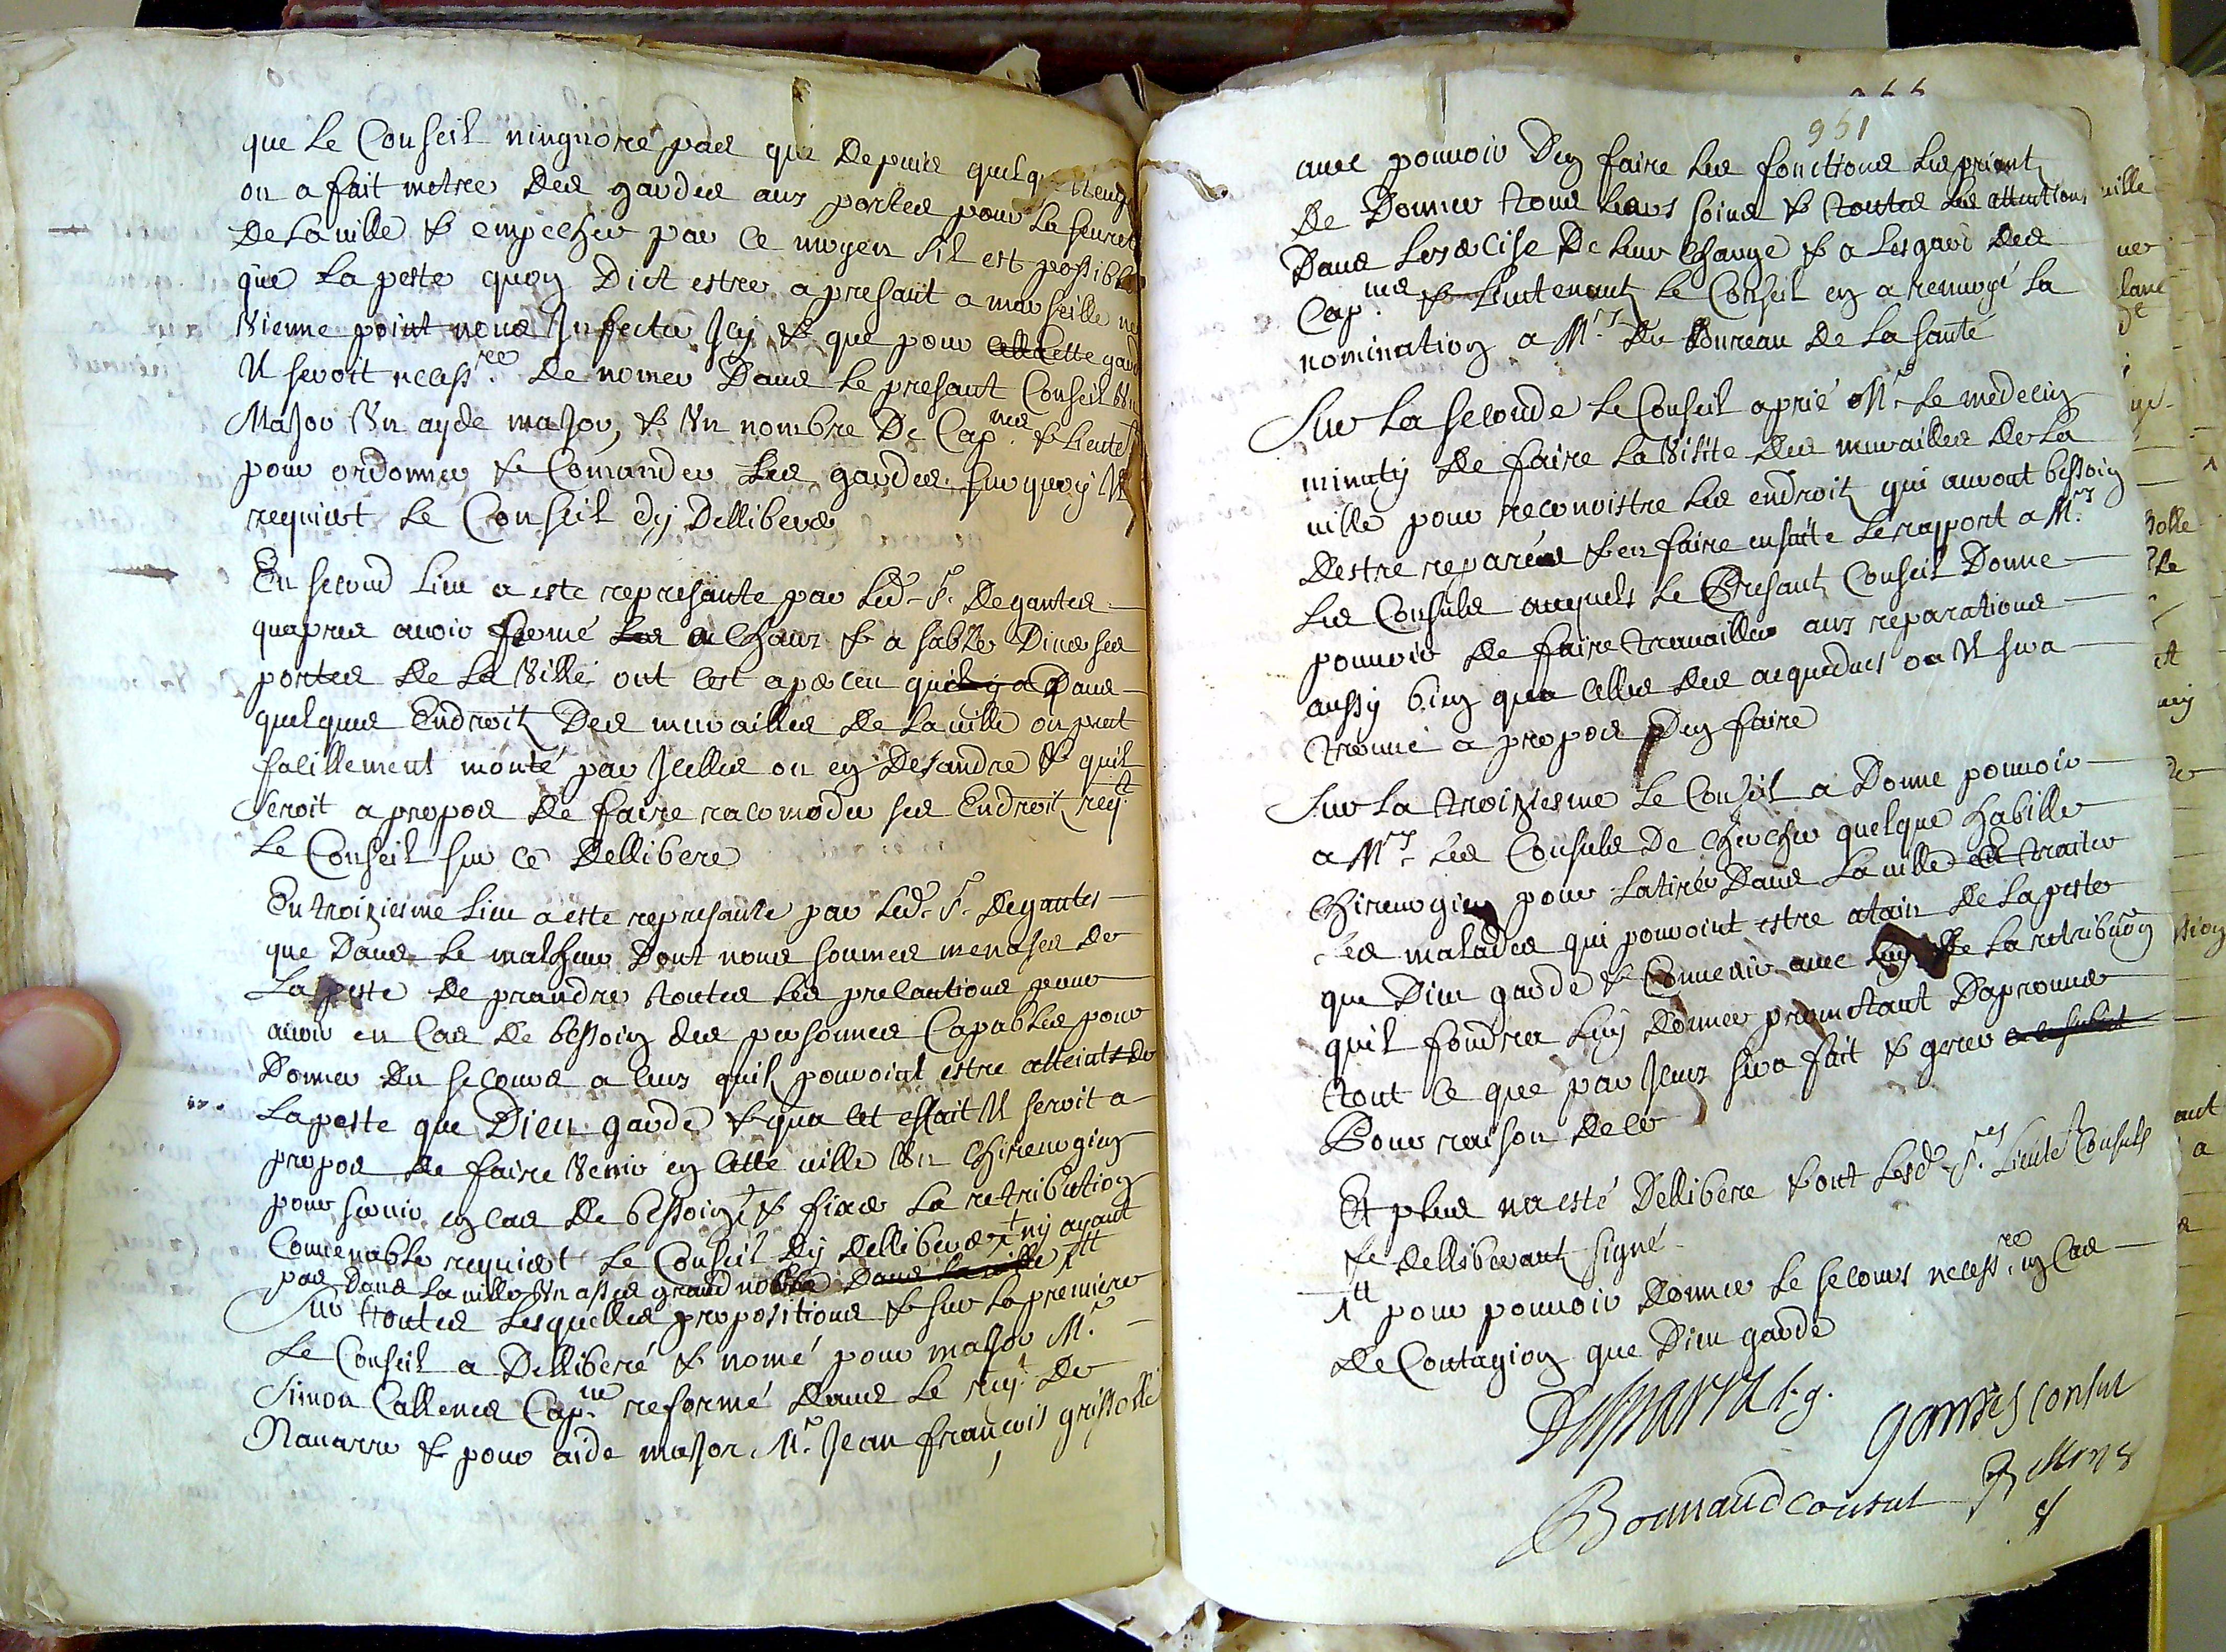 que Le Conseil ningnore pas que Depuis quelque temps
on a fait metre des gardes aux portes pour La seureté
De La ville & empecher par ce moyen sil est possible
que La peste quon Dict estre a presant a marseille ne
Vienne point nous Infecter Icy & que pour cette garde
Il seroit necessre. De nomer Dans Le presant Conseil Un
Major Un ayde major, & Un nombre De Capnes. & Lieutets
pour ordonner & Comander Les gardes surquoy Il
requiert Le Conseil dy Delliberer
En second Lieu a este represante par Led. Sr. Degantes
quapres avoir fermé a chaux & a sable Diverses
portes De La Ville ont cest apercu que Dans
quelques Endroits Des murailles De La ville on peut
facillement monté par Icelles ou en Desandre & quil
seroit a propos De faire racomoder ses Endroits reqt.
Le Conseil sur ce Dellibere
En troiziesme Lieu a este represante par Led. Sr. Degantes
que Dans Le malheur Dont nous sommes menases De
La peste De prandre toutes Les precautions pour
avoir en Cas De bessoin des personnes Capables pour
Donner Du secours a ceux quils pouroint estre atteints De
La peste que Dieu garde & qua cet effait Il seroit a
propos De faire Venir en cette ville Un Chireurgien
pour servir en cas De bessoin & fixer La retribution
Convenable requiert Le Conseil Dy Delliberer ny ayant
pas Dans La ville Un asses grand nombre Dans La ville
Sur toutes Lesquelles propositions & sur La premiere
Le Conseil a Delliberé & nomé pour major Mr.
Simon Callemes Capne. reformé Dans Le regt. De
Navarre & pour aide major Mr. Jean francois grissolle
951
avec pouvoir Den faire Les fonctions Les priant
De Donner tous Leurs soins & toutes Les attantions
Dans Lexercise De Leur Charge & a Lesgard des
Capnes. & Lieutenants Le Conseil en a renvoyé La
nomination a Mrs. Du Boureau De La santé
Sur La seconde Le Conseil a prié Mr. Le medecin
minuty De faire La Visite Des murailles De La
ville pour reconoistre Les endroits qui auront bessoin
Destre reparées & en faire ensuite Le rapport a Mrs.
Les Consuls auquels Le Presant Conseil Donne
pouvoir De faire travailler aux reparations
aussy bien qua celles Des aqueducs ou Il sera
trouvé a propos Den faire
Sur La troiziesme Le Conseil a Donne pouvoir
a Mrs. Les Consuls De chercher quelque habille
Chireurgien pour Latirer Dans La ville traiter
Les malades qui pouroint estre atain De La peste
que Dieu garde & Convenir avec Luy De La retribuon
quil foudra Luy Donner prometant Daprouver
tout ce que par Iceux sera fait & gerer
Pour raison De ce
Et plus na esté Dellibere & ont Lesd. Srs. Lieutet Consuls
& Delliberants signé
pour pouvoir Donner Le secours necessre. en Cas
De Contagion que Dieu garde
gantes consul
Bonnaud consul